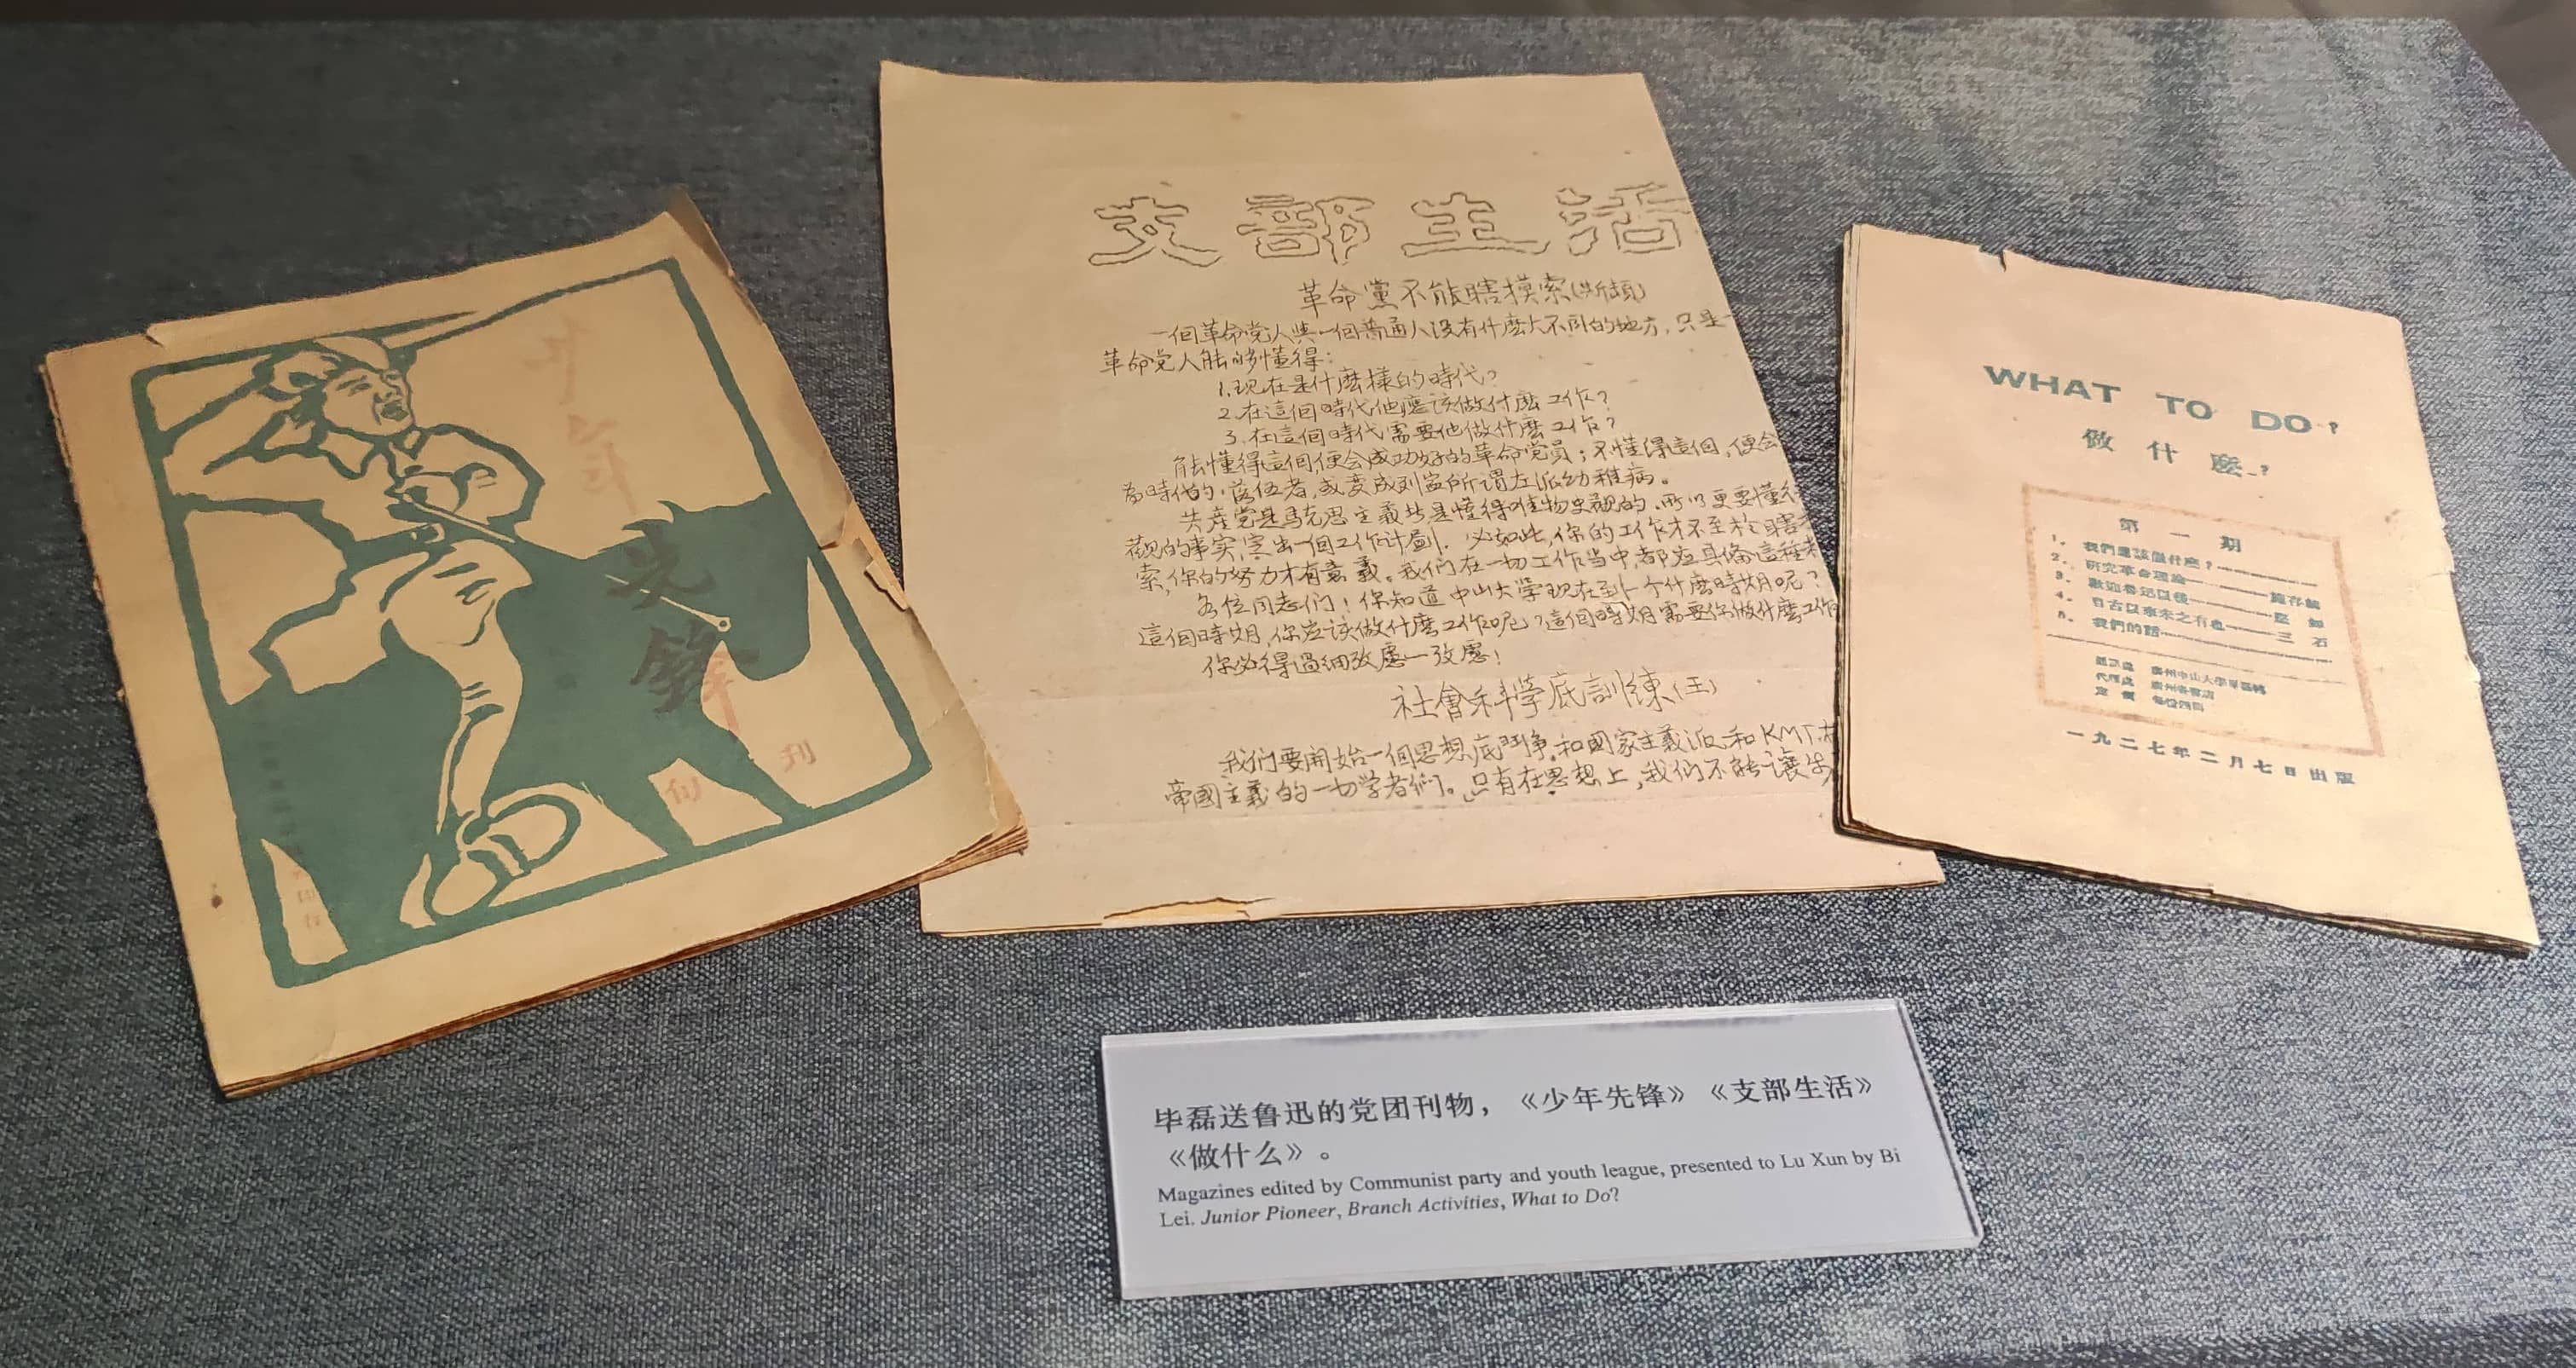 少年
先锋
旬刊
支部生活
革命黨不能瞎摸索
一個革命党人與一個普通人没有什麽大不同的地方，只是
革命党人能够懂得：
1.现在是什麽樣的時代？
2.在這個時代他應该做什麽工作？
3.在這個時代需要他做什麽工作？
能懂得這個，便会成功好的革命党員；不懂得這個，便会
為時代的落伍者，或变成列宓所謂左派幼稚病。
共產党是馬克思主義者是懂得唯物史觀的，所以更要懂得
觀的事实，定出一個工作计劃．必如此，你的工作才不至於瞎
索，你的努力才有意義。我们在一切工作当中，都应具备這種
各位同志们！你知道中山大学现在到了个什麽時期呢？
這個時期，你应该做什麽工作呢？這個時期需要你做什麽工作
你必得過細攷慮一攷慮！
社會科學底訓練(玉)
我们要開始一個思想底鬥争，和國家主義派，和KMT
帝國主義的一切学者們。只有在思想上，我们不能讓
WHAT TO DO?
做什麽?
第一期
1. 我們應該做什麽？
2. 研究革命理論 施存統
3. 歡迎魯迅以後 堅如
4. 自古以來未之有也 三石
5. 我們的話
通訊處 廣州中山大學畢磊轉
代理處 廣州各書店
定價 每份四銅
一九二七年二月七日出版
毕磊送鲁迅的党团刊物，《少年先锋》《支部生活》
《做什么》。
Magazines edited by Communist party and youth league, presented to Lu Xun by Bi
Lei. Junior Pioneer, Branch Activities, What to Do?